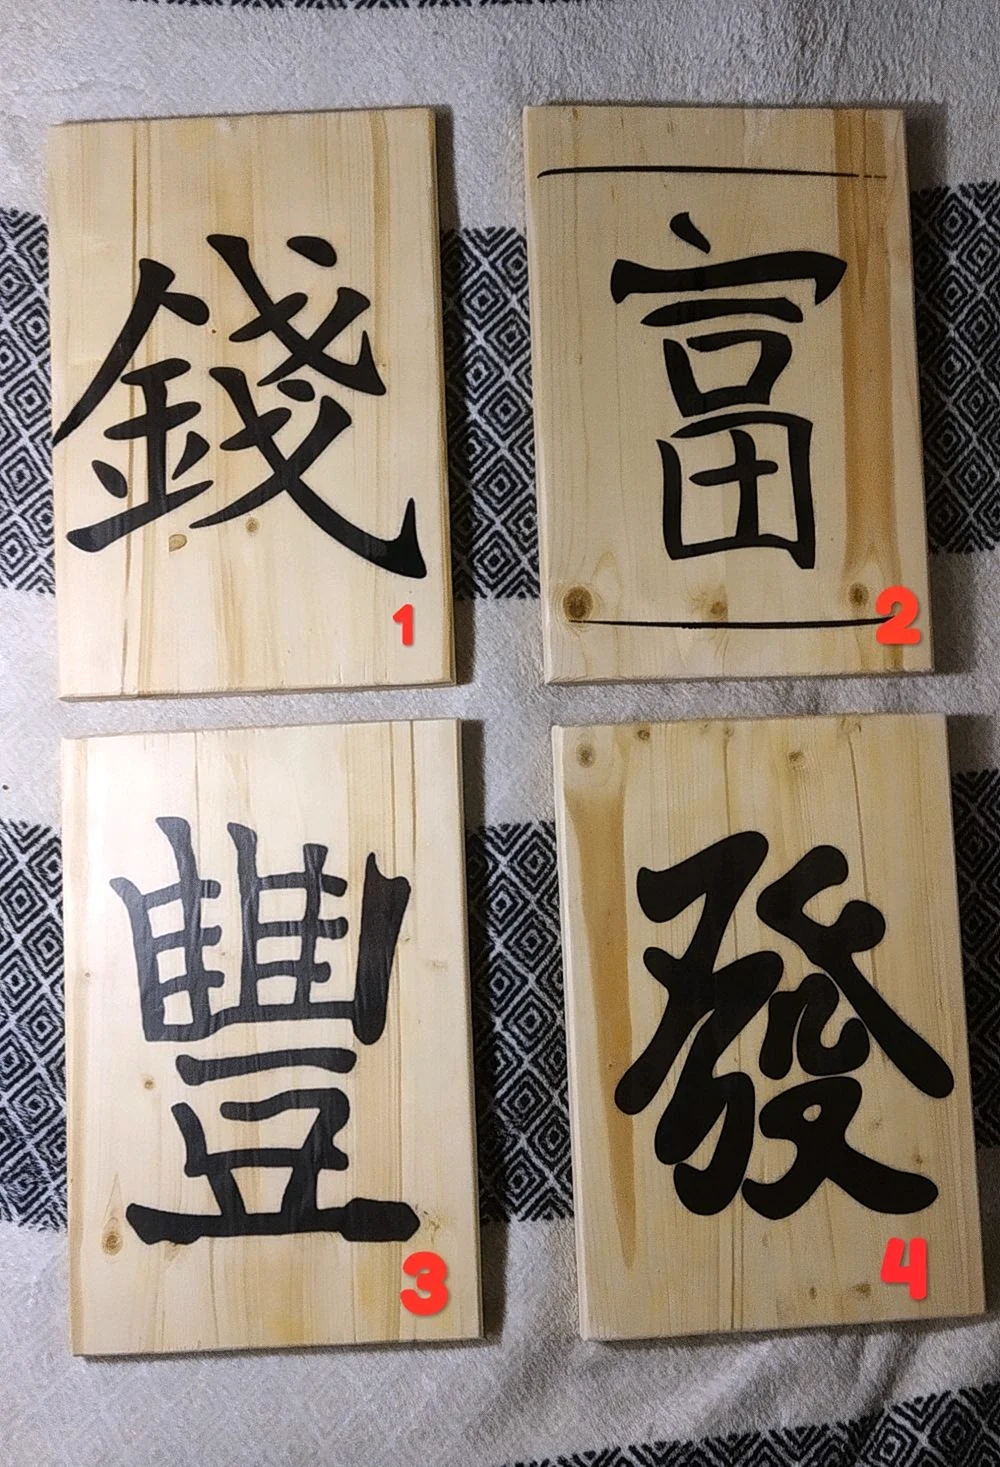 錢
1
富
2
豐
3
發
4